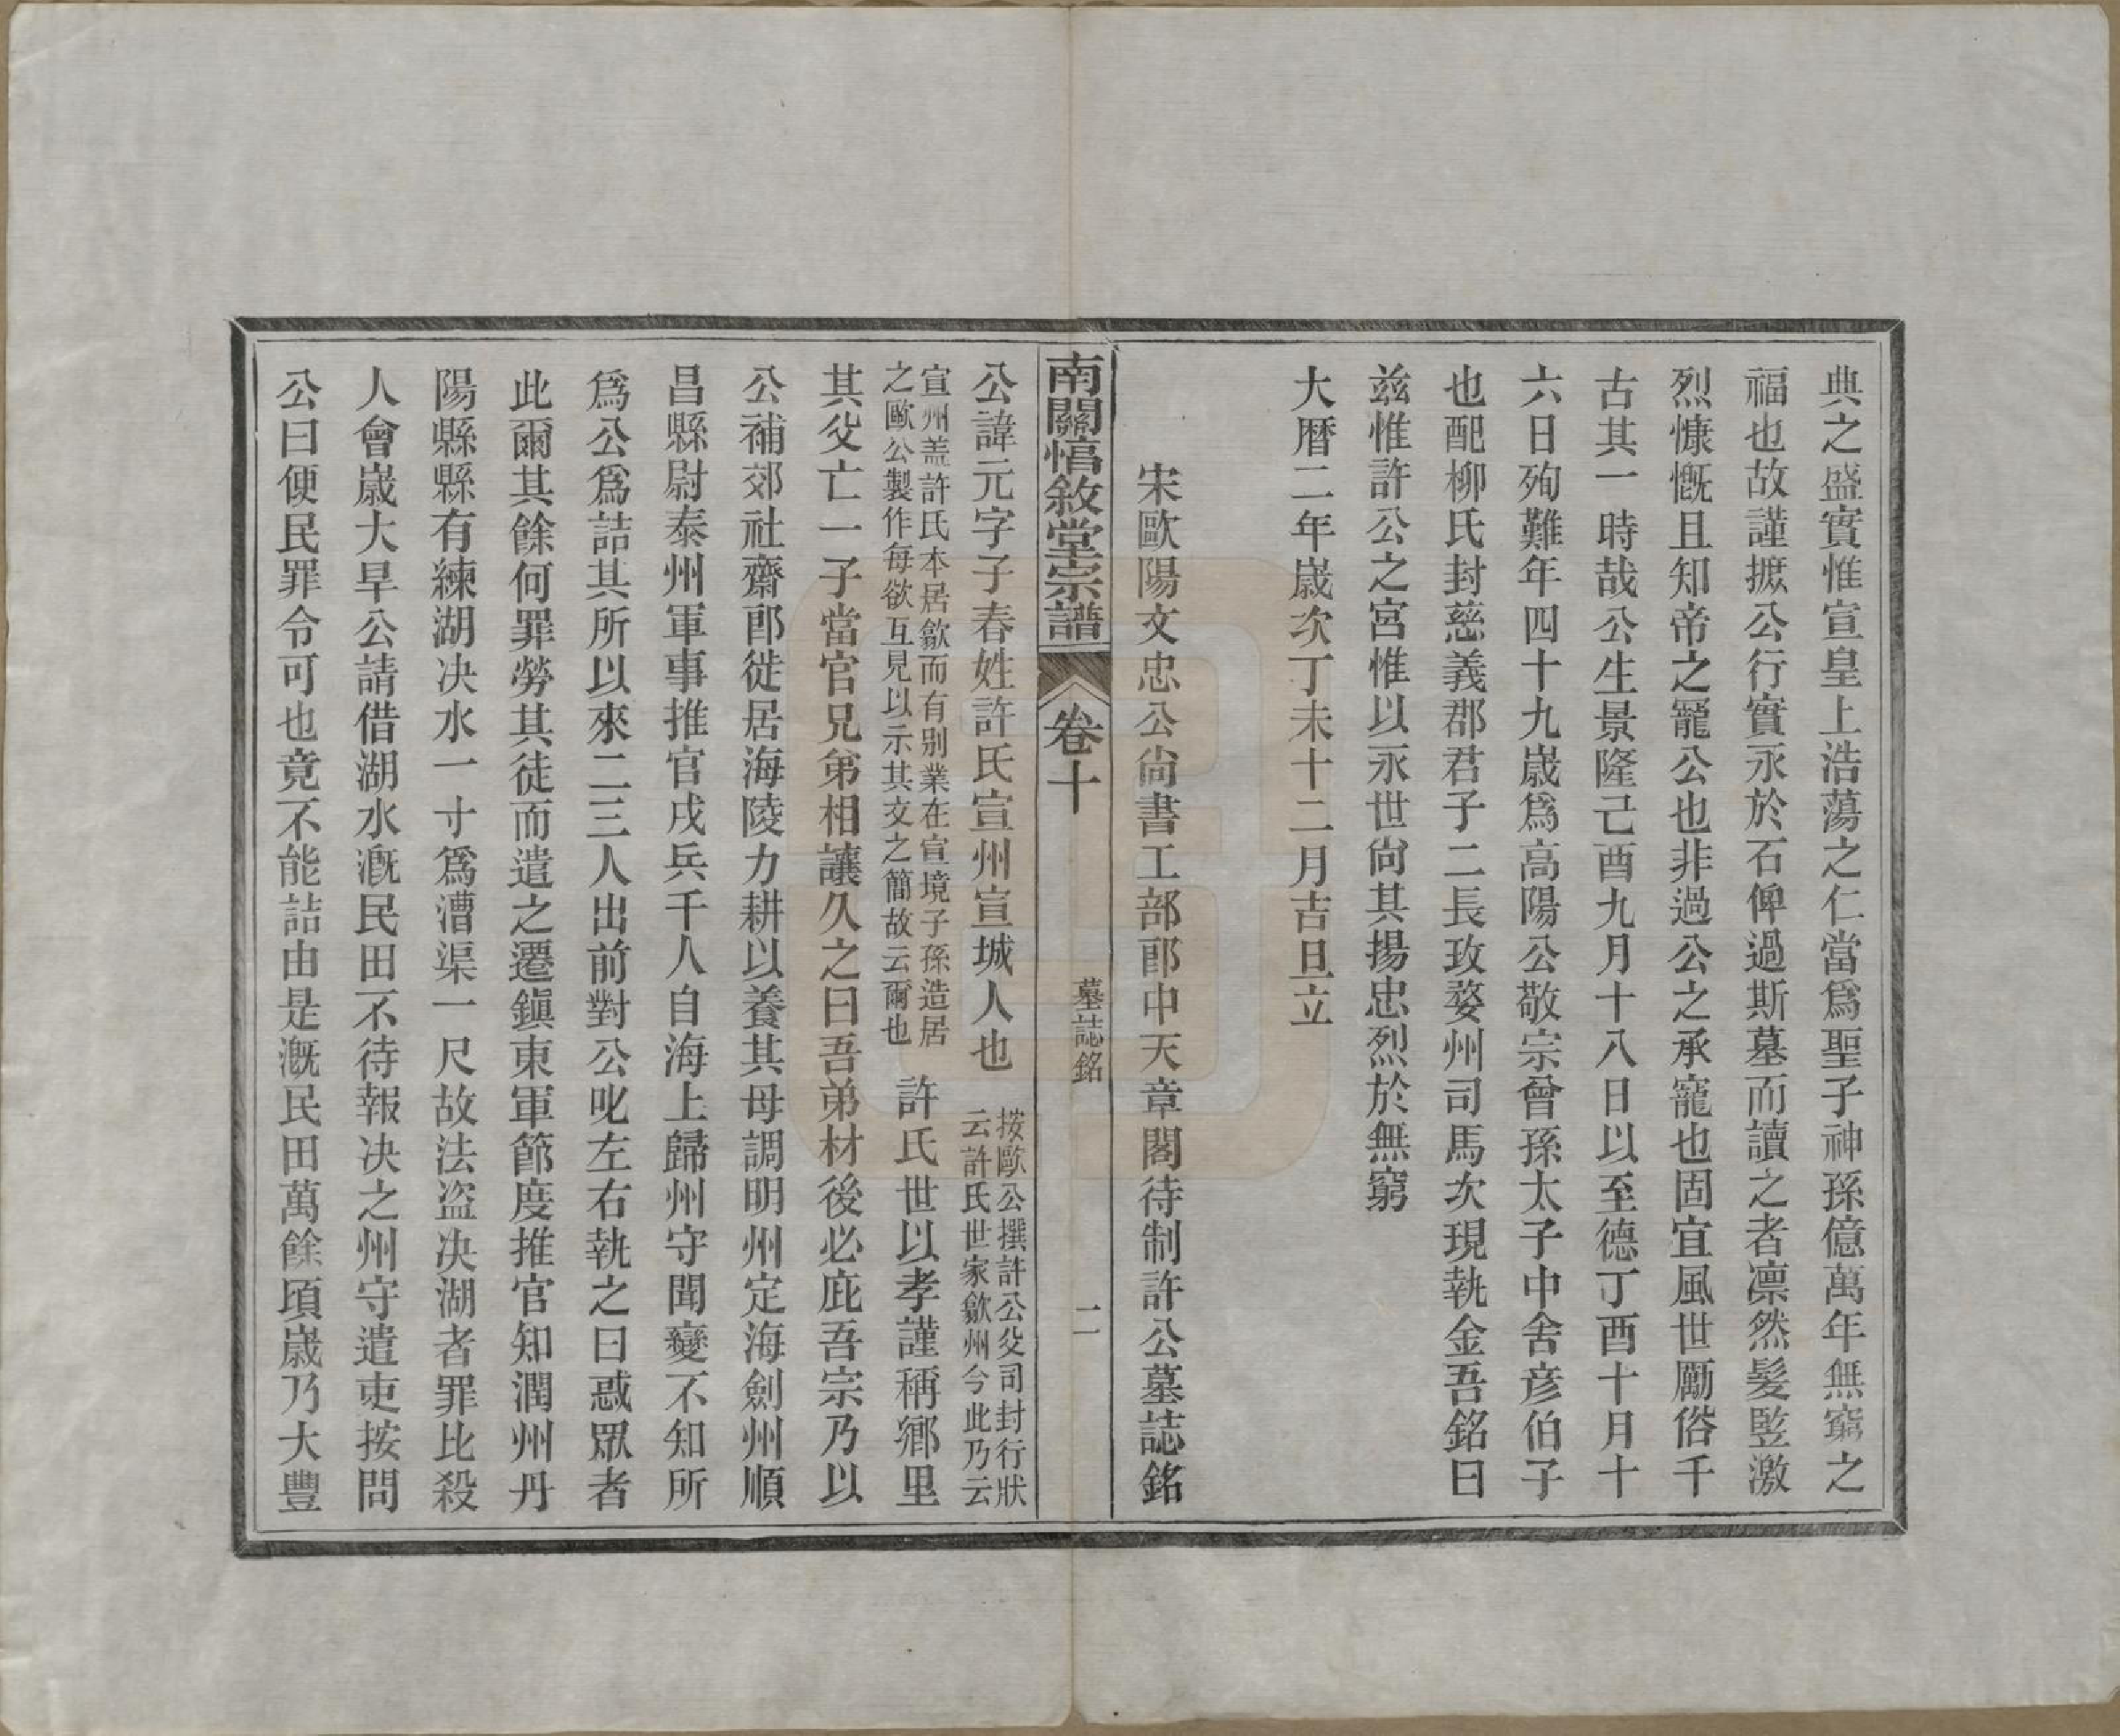 典之盛實惟宣皇上浩蕩之仁當爲聖子神孫億萬年無窮之
福也故謹摭公行實永於石俾過斯墓而讀之者凛然髮竪激
烈慷慨且知帝之寵公也非過公之承寵也固宜風世勵俗千
古其一時哉公生景隆己酉九月十八日以至德丁酉十月十
六日殉難年四十九歲爲高陽公敬宗曾孫太子中舍彦伯子
也配柳氏封慈義郡君子二長玫婺州司馬次現執金吾銘曰
兹惟許公之宮惟以永世尙其揚忠烈於無窮
大曆二年歲次丁未十二月吉旦立
宋歐陽文忠公尙書工部郎中天章閣待制許公墓誌銘
南關惇敘堂宗譜 卷十 墓誌銘 二
公諱元字子春姓許氏宣州宣城人也 按歐公撰許公父司封行狀
云許氏世家歙州今此乃云
宣州盖許氏本居歙而有别業在宣境子孫造居
之歐公製作每欲互見以示其文之簡故云爾也 許氏世以孝謹稱鄉里
其父亡一子當官兄弟相讓久之曰吾弟材後必庇吾宗乃以
公補郊社齋郎徙居海陵力耕以養其母調明州定海劍州順
昌縣尉泰州軍事推官戍兵千人自海上歸州守聞變不知所
爲公爲詰其所以來二三人出前對公叱左右執之曰惑眾者
此爾其餘何罪勞其徒而遣之遷鎭東軍節度推官知潤州丹
陽縣縣有練湖决水一寸爲漕渠一尺故法盜决湖者罪比殺
人會歲大旱公請借湖水漑民田不待報决之州守遣吏按問
公曰便民罪令可也竟不能詰由是漑民田萬餘頃歲乃大豐